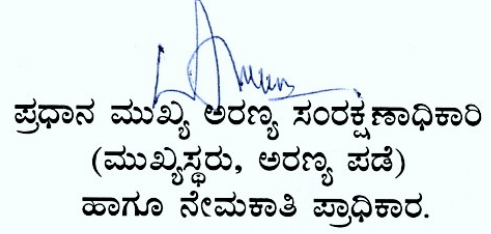 ಪ್ರಧಾನ ಮುಖ್ಯ ಅರಣ್ಯ ಸಂರಕ್ಷಣಾಧಿಕಾರಿ
(ಮುಖ್ಯಸ್ಥರು, ಅರಣ್ಯ ಪಡೆ)
ಹಾಗೂ ನೇಮಕಾತಿ ಪ್ರಾಧಿಕಾರ.